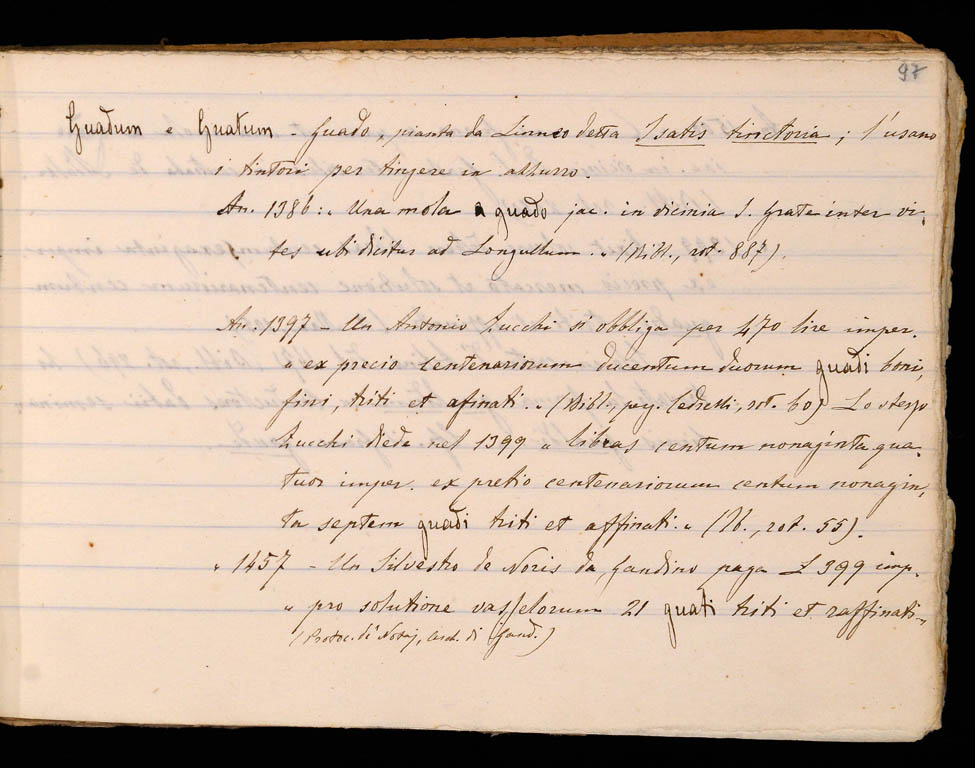 97
Guadum e Guatum - Guado, pianta da Linneo detta Isatis tinctoria; l'usano
i tintori per tingere in azzurro.
An. 1386: „ Una mola a guado jac. in vicinia S. Grate inter vi-
tes ubi dicitur ad Longullum. „ (Bibl., rot. 887).
An. 1397 - Un Antonio Zucchi s'obbliga per 470 lire imper.
„ ex precio centenariorum ducentum duorum guadi boni,
fini, triti et afinati. „ (Bibl., reg. Cedrelli, rot. 60) Lo stesso
Zucchi diede nel 1399 „ libras centum nonaginta qua-
tuor imper. ex pretio centenariorum centum nonagin-
ta septem guadi triti et affinati. „ (Ib., rot. 55).
„ 1457 - Un Silvestro de Noris da Gandino paga £ 399 imp.
„ pro solutione vasselorum 21 guati triti et raffinati „
(Protoc. di Notaj, Arch. di Gand.)